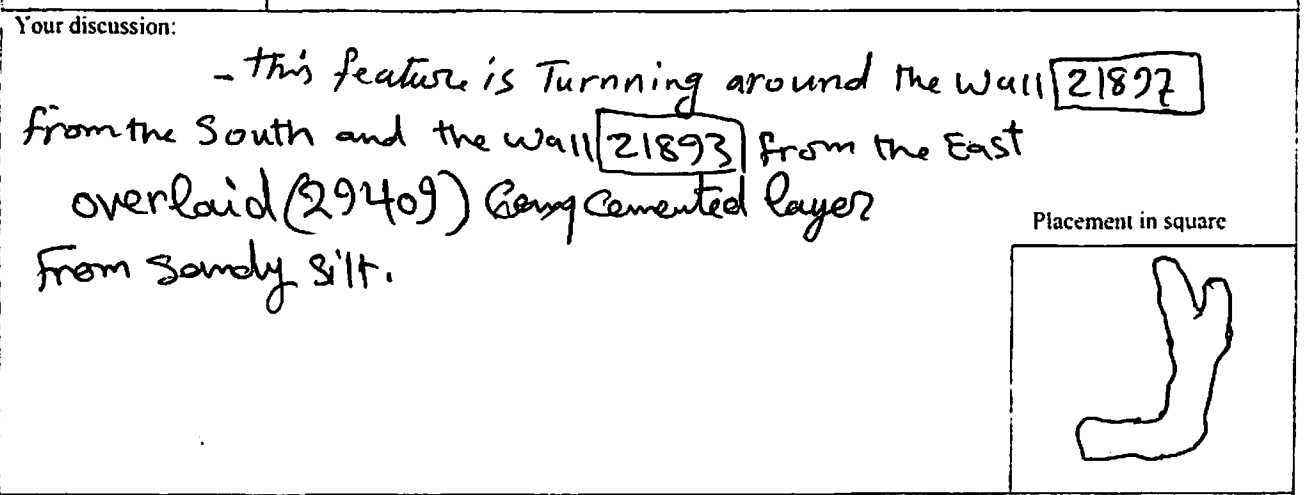 Your discussion:
- this feature is Turnning around the wall 21897
from the South and the wall 21893 from the East
overlaid (29409) cemented layer
Placement in square
From Sandy Silt.